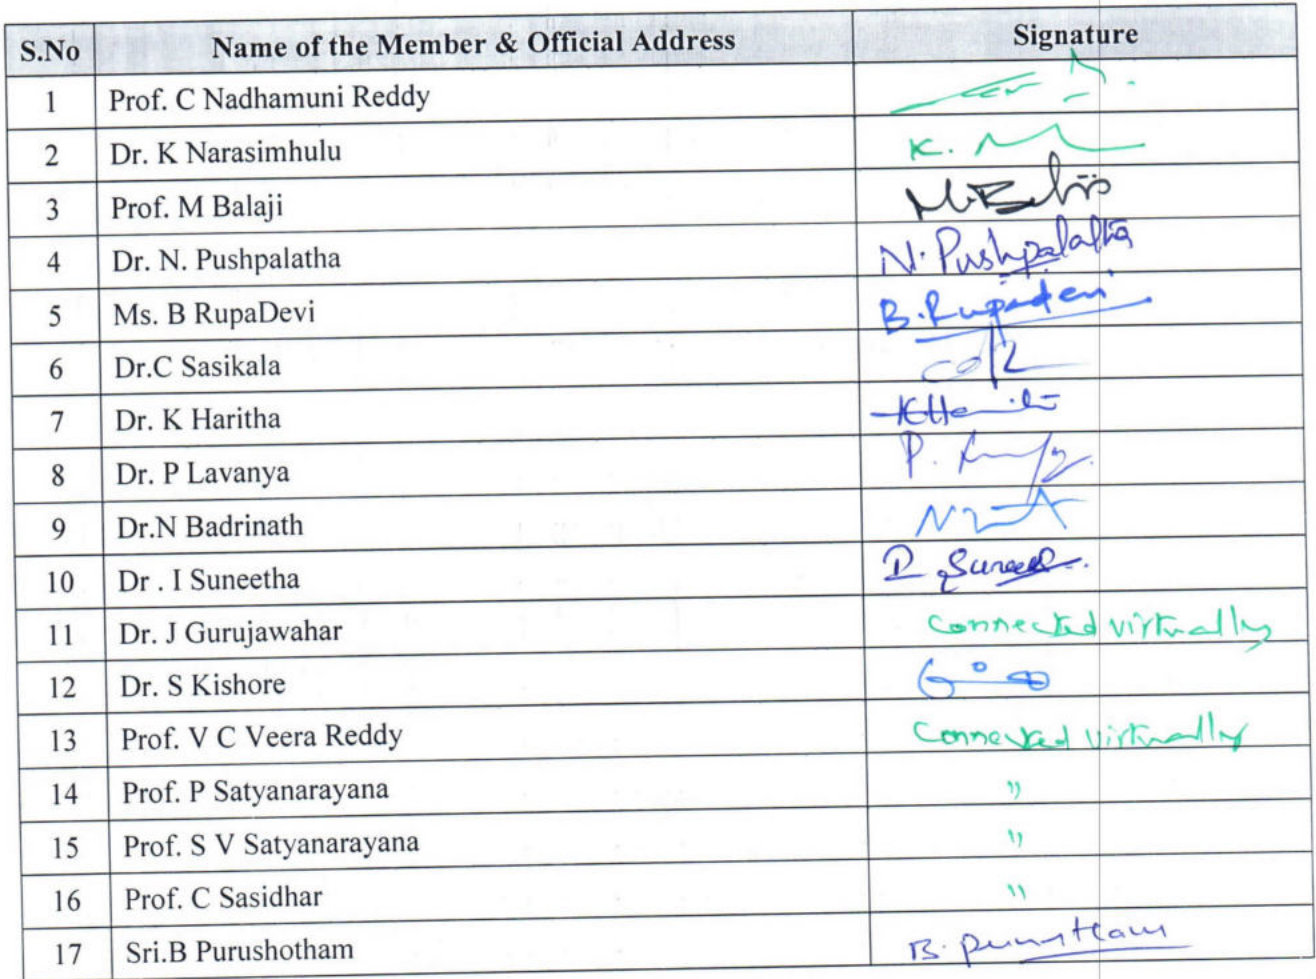 S.No Name of the Member & Official Address Signature
1 Prof. C Nadhamuni Reddy
2 Dr. K Narasimhulu K.
3 Prof. M Balaji M. Balaji
4 Dr. N. Pushpalatha N. Pushpalatha
5 Ms. B RupaDevi B. Rupadevi
6 Dr.C Sasikala
7 Dr. K Haritha
8 Dr. P Lavanya P.
9 Dr.N Badrinath
10 Dr . I Suneetha I
11 Dr. J Gurujawahar Connected virtually
12 Dr. S Kishore
13 Prof. V C Veera Reddy Connected virtually
14 Prof. P Satyanarayana "
15 Prof. S V Satyanarayana "
16 Prof. C Sasidhar "
17 Sri.B Purushotham B.